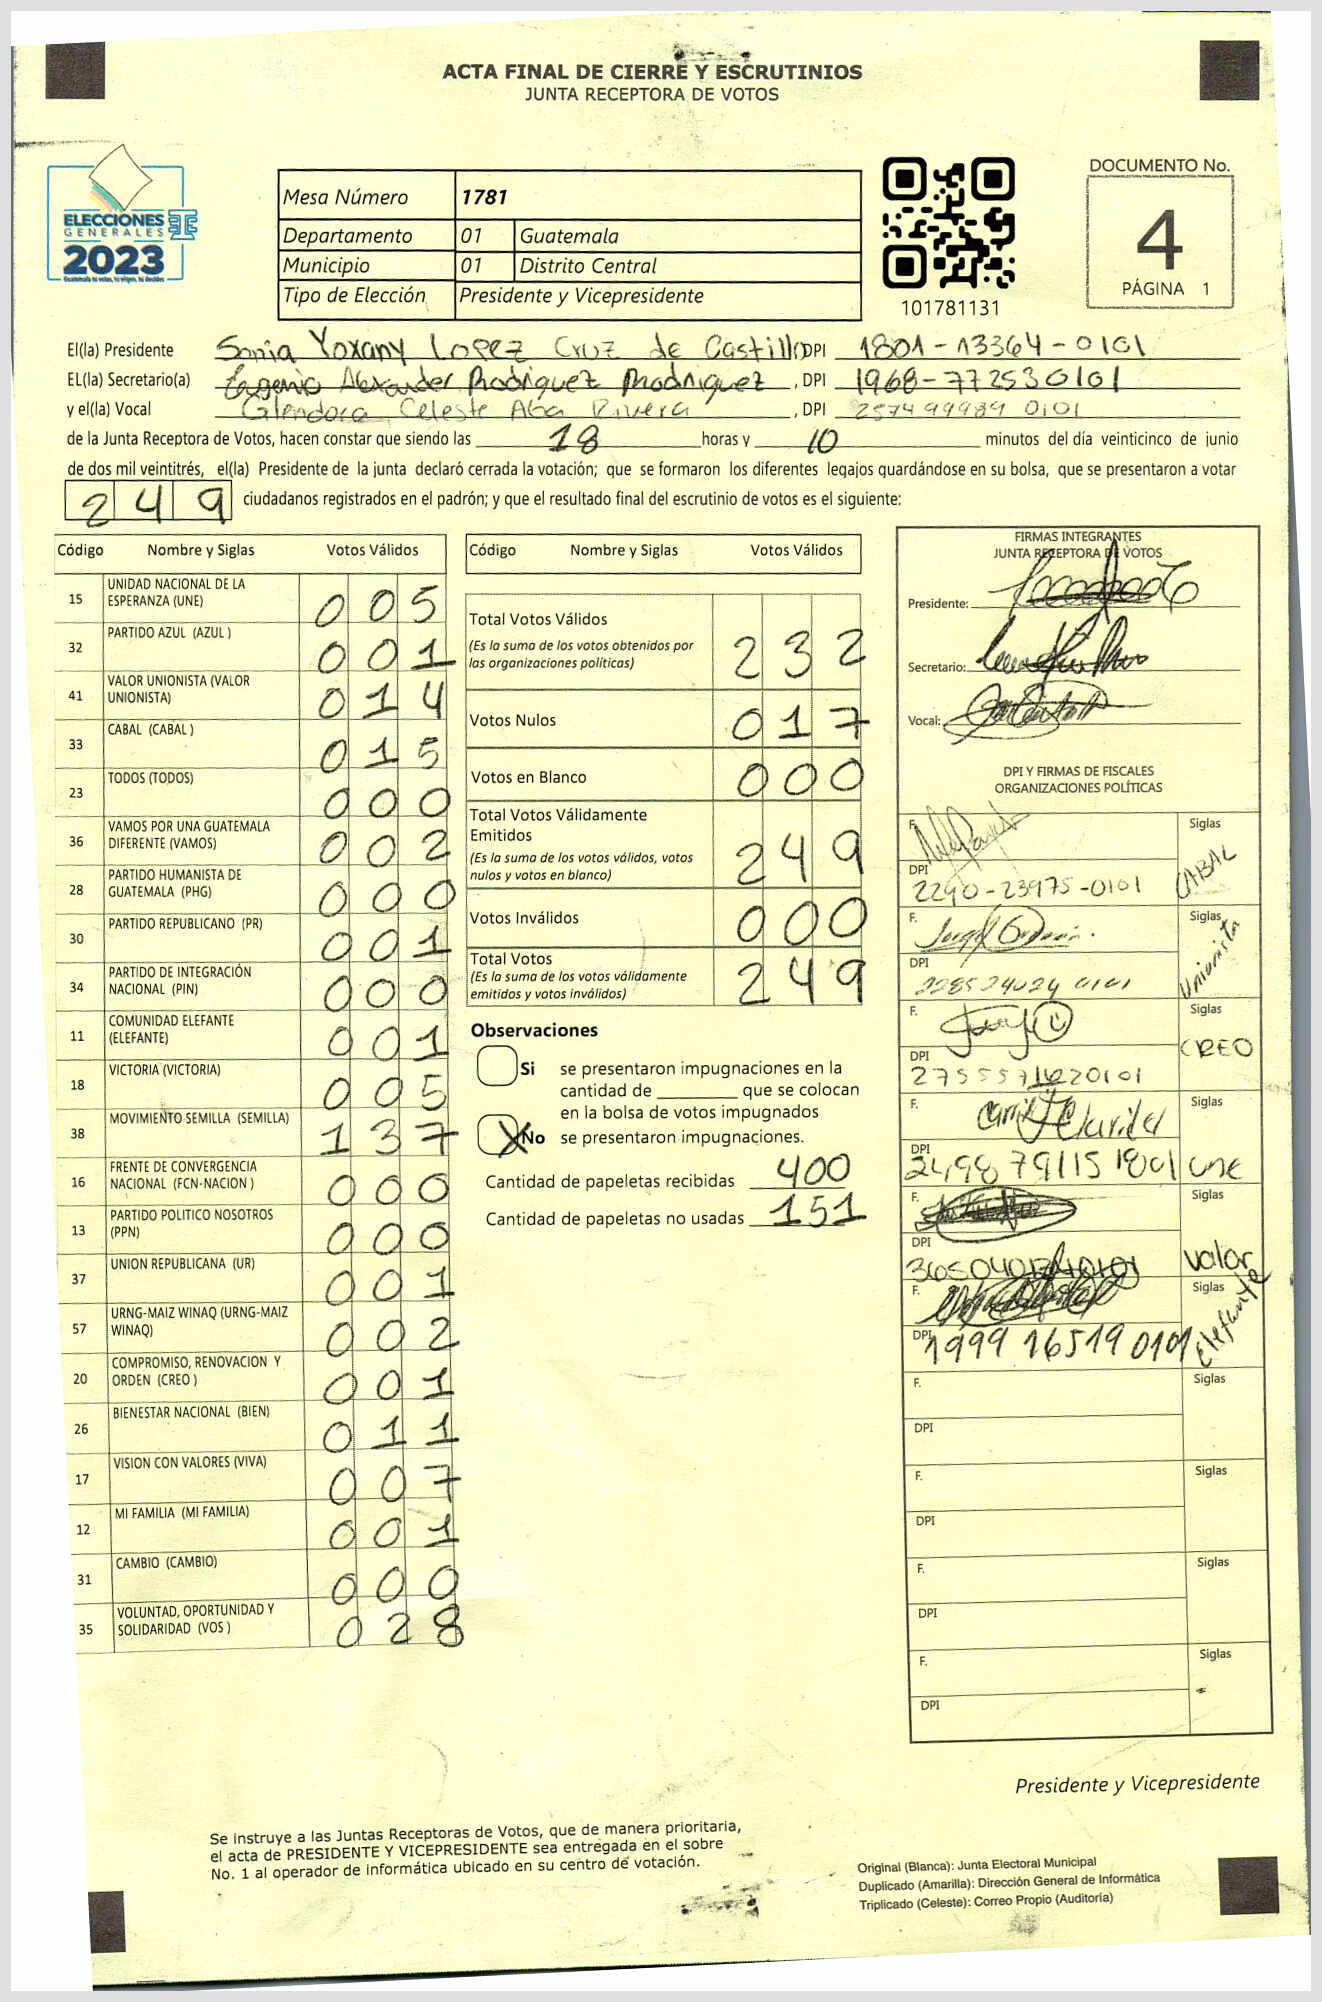 ACTA FINAL DE CIERRE Y ESCRUTINIOS
JUNTA RECEPTORA DE VOTOS
ELECCIONES
GENERALES
2023
Mesa Número 1781
Departamento 01 Guatemala
Municipio 01 Distrito Central
Tipo de Elección Presidente y Vicepresidente
101781131
DOCUMENTO No.
4
PÁGINA 1
El(la) Presidente Sonia Yoxany Lopez Cruz de Castillo DPI 1801-13364-0101
EL(la) Secretario(a) Eugenio Alexander Rodriguez Rodriguez , DPI 1968-772530101
y el(la) Vocal Glendora Celeste Aba Rivera , DPI 257499989 0101
de la Junta Receptora de Votos, hacen constar que siendo las 18 horas y 10 minutos del día veinticinco de junio
de dos mil veintitrés, el(la) Presidente de la junta declaró cerrada la votación; que se formaron los diferentes legajos guardándose en su bolsa, que se presentaron a votar
249 ciudadanos registrados en el padrón; y que el resultado final del escrutinio de votos es el siguiente:
Código Nombre y Siglas Votos Válidos
15 UNIDAD NACIONAL DE LA ESPERANZA (UNE) 005
32 PARTIDO AZUL (AZUL ) 001
41 VALOR UNIONISTA (VALOR UNIONISTA) 014
33 CABAL (CABAL ) 015
23 TODOS (TODOS) 000
36 VAMOS POR UNA GUATEMALA DIFERENTE (VAMOS) 002
28 PARTIDO HUMANISTA DE GUATEMALA (PHG) 000
30 PARTIDO REPUBLICANO (PR) 001
34 PARTIDO DE INTEGRACIÓN NACIONAL (PIN) 000
11 COMUNIDAD ELEFANTE (ELEFANTE) 001
18 VICTORIA (VICTORIA) 005
38 MOVIMIENTO SEMILLA (SEMILLA) 137
16 FRENTE DE CONVERGENCIA NACIONAL (FCN-NACION ) 000
13 PARTIDO POLITICO NOSOTROS (PPN) 000
37 UNION REPUBLICANA (UR) 001
57 URNG-MAIZ WINAQ (URNG-MAIZ WINAQ) 002
20 COMPROMISO, RENOVACION Y ORDEN (CREO ) 001
26 BIENESTAR NACIONAL (BIEN) 011
17 VISION CON VALORES (VIVA) 007
12 MI FAMILIA (MI FAMILIA) 001
31 CAMBIO (CAMBIO) 000
35 VOLUNTAD, OPORTUNIDAD Y SOLIDARIDAD (VOS ) 028
Código Nombre y Siglas Votos Válidos
Total Votos Válidos 232
(Es la suma de los votos obtenidos por
las organizaciones políticas)
Votos Nulos 017
Votos en Blanco 000
Total Votos Válidamente
Emitidos 249
(Es la suma de los votos válidos, votos
nulos y votos en blanco)
Votos Inválidos 000
Total Votos 249
(Es la suma de los votos válidamente
emitidos y votos inválidos)
Observaciones
Si se presentaron impugnaciones en la
cantidad de ________ que se colocan
en la bolsa de votos impugnados
X No se presentaron impugnaciones.
Cantidad de papeletas recibidas 400
Cantidad de papeletas no usadas 151
FIRMAS INTEGRANTES
JUNTA RECEPTORA DE VOTOS
Presidente:
Secretario:
Vocal:
DPI Y FIRMAS DE FISCALES
ORGANIZACIONES POLÍTICAS
F. Siglas
DPI 2290-23975-0101 CABAL
F. Siglas
DPI 228524024 0101 Unionista
F. Siglas
DPI CREO
F. Siglas
DPI 2498 79115 1801 UNE
F. Siglas
DPI Valor
F. Siglas
DPI 1999 16519 0101 Elefante
F. Siglas
DPI
F. Siglas
DPI
F. Siglas
DPI
F. Siglas
DPI
Presidente y Vicepresidente
Se instruye a las Juntas Receptoras de Votos, que de manera prioritaria,
el acta de PRESIDENTE Y VICEPRESIDENTE sea entregada en el sobre
No. 1 al operador de informática ubicado en su centro de votación.
Original (Blanca): Junta Electoral Municipal
Duplicado (Amarilla): Dirección General de Informática
Triplicado (Celeste): Correo Propio (Auditoría)